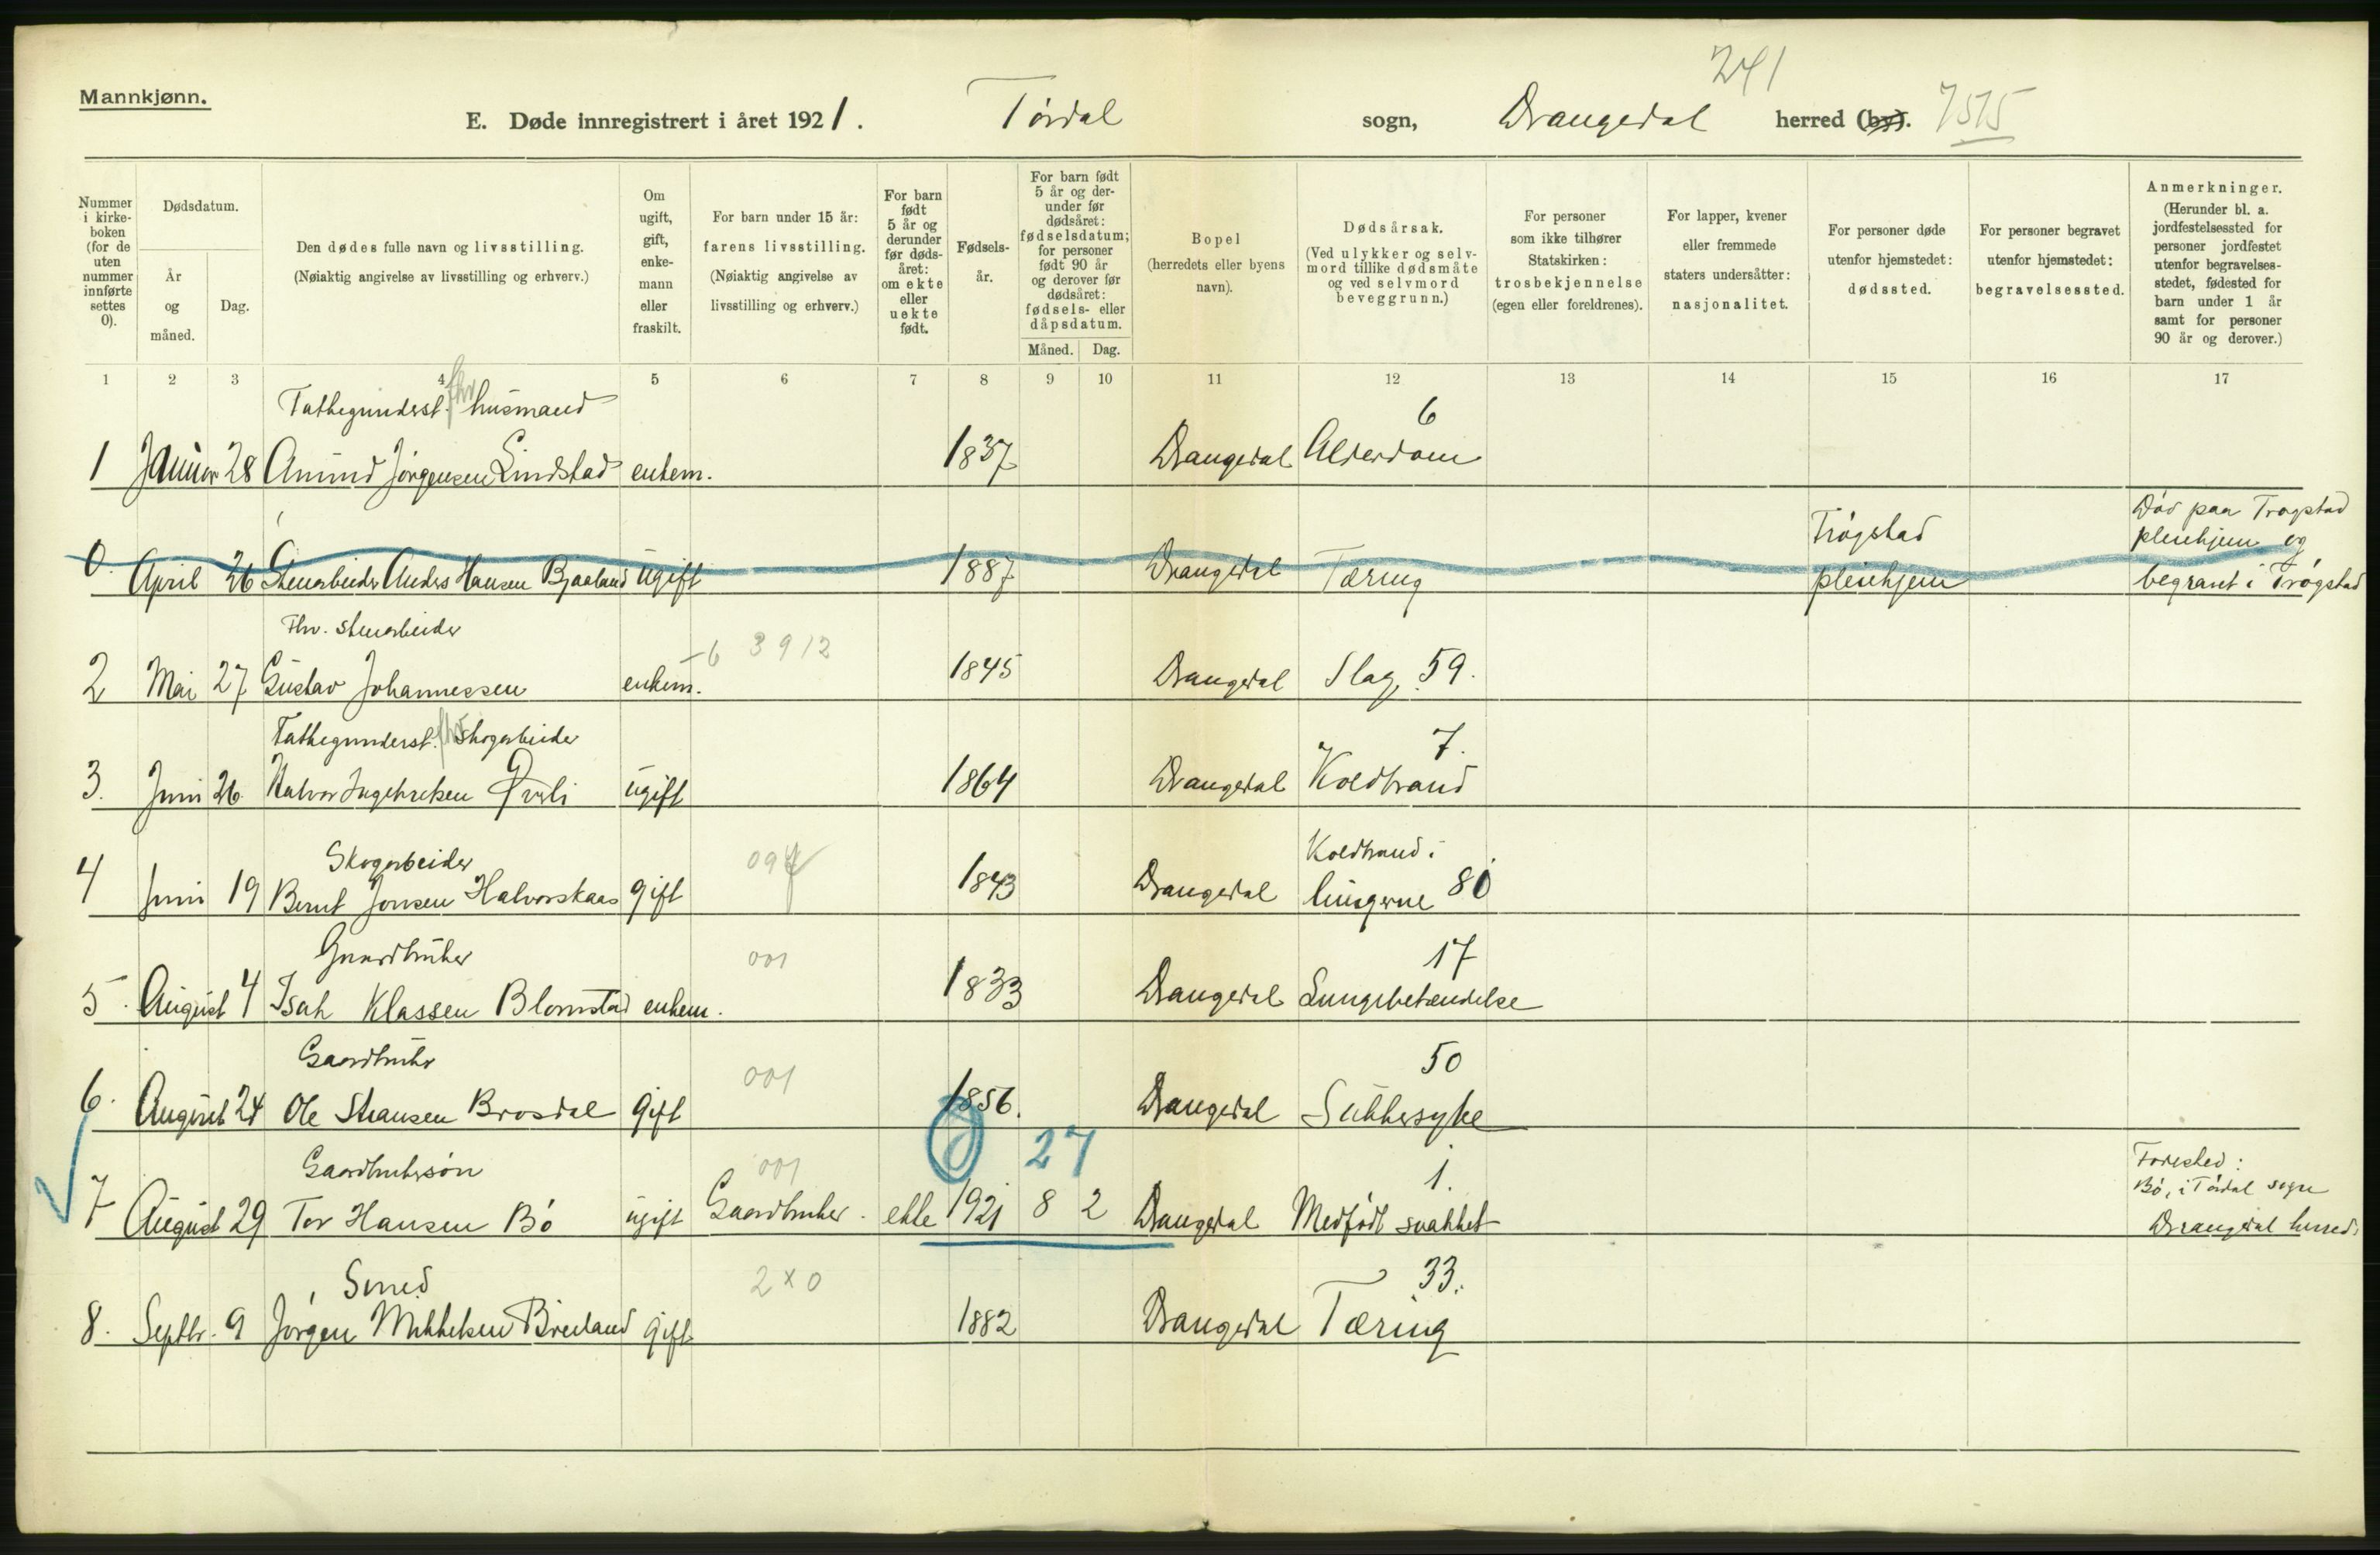 241
Mannkjønn.
E. Døde innregistrert i året 1921. Tørdal sogn, Drangedal herred (by). 7515
Nummer i kirkeboken (for de uten nummer innførte settes 0).
Dødsdatum.
År og måned.
Dag.
Den dødes fulle navn og livsstilling.
(Nøiaktig angivelse av livsstilling og erhverv.)
Om ugift, gift, enkemann eller fraskilt.
For barn under 15 år:
farens livsstilling.
(Nøiaktig angivelse av livsstilling og erhverv.)
For barn født 5 år og derunder før dødsåret: om ekte eller uekte født.
Fødselsår.
For barn født 5 år og derunder før dødsåret: fødselsdatum; for personer født 90 år og derover før dødsåret: fødsels- eller dåpsdatum.
Måned. Dag.
Bopel
(herredets eller byens navn).
Dødsårsak.
(Ved ulykker og selvmord tillike dødsmåte og ved selvmord beveggrunn.)
For personer som ikke tilhører Statskirken: trosbekjennelse (egen eller foreldrenes).
For lapper, kvener eller fremmede staters undersåtter: nasjonalitet.
For personer døde utenfor hjemstedet: dødssted.
For personer begravet utenfor hjemstedet: begravelsessted.
Anmerkninger.
(Herunder bl. a. jordfestelsessted for personer jordfestet utenfor begravelsesstedet, fødested for barn under 1 år samt for personer 90 år og derover.)
1 2 3 4 5 6 7 8 9 10 11 12 13 14 15 16 17
Fattigunderst. fhv husmand 6
1 Januar 28 Amund Jørgensen Lindstad enkem. 1837 Drangedal Alderdom
Trøgstad Død paa Trøgstad
pleiehjem og
0 April 26 Stenarbeider Anders Hansen Bjaaland ugift 1887 Drangedal Tæring pleiehjem begravet i Trøgstad
Fhv. stenarbeider 6 3912
2 Mai 27 Gustav Johannessen enkem. 1845 Drangedal Slag. 59.
Fattigunderst. fhv skogarbeider 7.
3. Juni 26 Halvor Ingebretsen Øverli ugift 1864 Drangedal Koldbrand
Skogarbeider 097 Koldbrand i
4 Juni 19 Bernt Jonsen Halvorskaas gift 1843 Drangedal lungerne 80
Gaardbruker 001 17
5. August 4 Isak Klassen Blomstad enkem. 1833 Drangedal Lungebetændelse
Gaardbruker 001 50
6. August 24 Ole Hansen Brosdal gift 1856. Drangedal Sukkersyke
27
Gaardbrukersøn 001 1. Fødested:
Bø, i Tørdal sogn
7 August 29 Tor Hansen Bø ugift Gaardbruker. ekte 1921 8 2 Drangedal Medfødt svakhet Drangedal herred.
Smed 2x0 33.
8. Septbr. 9 Jørgen Mikkelsen Breiland gift 1882 Drangedal Tæring